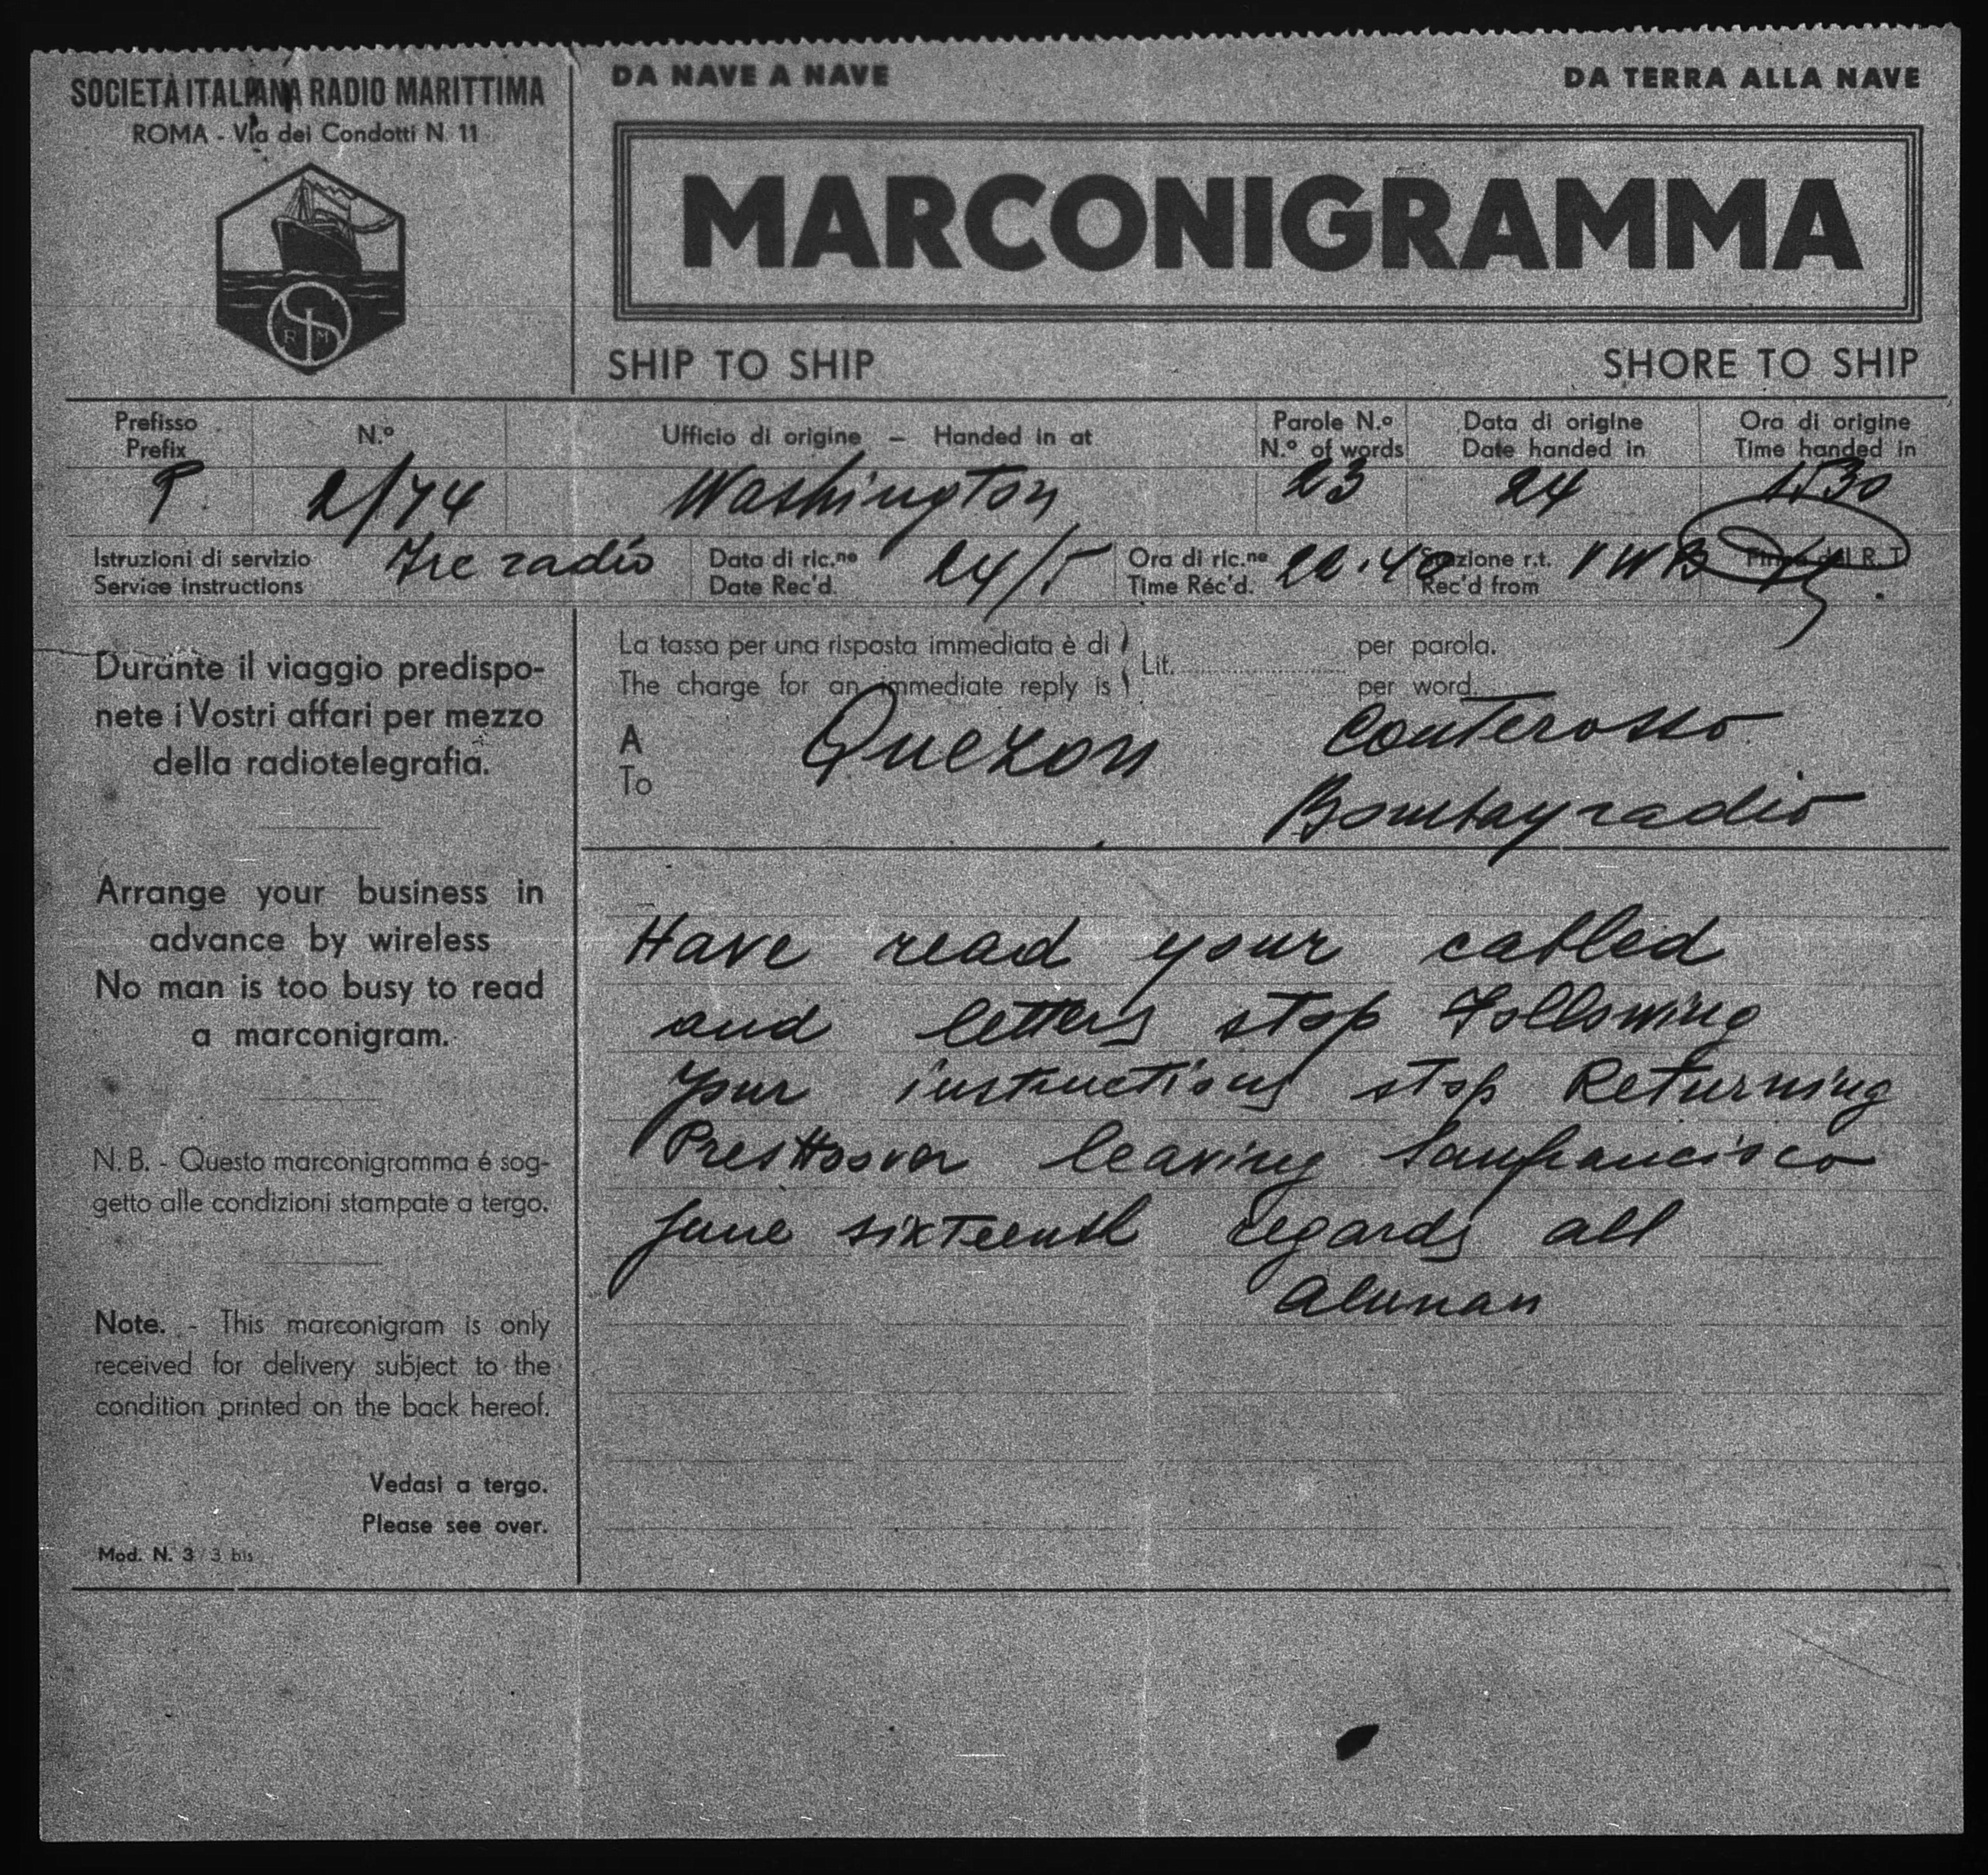 SOCIETÀ ITALIANA RADIO MARITTIMA
ROMA - Via dei Condotti N. 11
R S M
DA NAVE A NAVE
DA TERRA ALLA NAVE
MARCONIGRAMMA
SHIP TO SHIP
SHORE TO SHIP
Prefisso
Prefix
N.º
Ufficio di origine - Handed in at
Parole N.º
N.º of words
Data di origine
Date handed in
Ora di origine
Time handed in
P. 2/74 Washington 23 24 1530
Istruzioni di servizio
Service instructions
radio
Data di ric.ne
Date Rec'd.
24/5
Ora di ric.ne
Time Réc'd.
22.40
Stazione r.t.
Rec'd from
VWB
Firma del R. T.
La tassa per una risposta immediata è di
The charge for an immediate reply is
Lit.
per parola.
per word.
A
To
Quezon Conterosso
Bombayradio
Have read your cabled
and letters stop Following
your instructions stop Returning
PresHoover leaving Sanfrancisco
June sixteenth regards all
Alunan
Durante il viaggio predispo-
nete i Vostri affari per mezzo
della radiotelegrafia.
Arrange your business in
advance by wireless
No man is too busy to read
a marconigram.
N. B. - Questo marconigramma é sog-
getto alle condizioni stampate a tergo.
Note. - This marconigram is only
received for delivery subject to the
condition printed on the back hereof.
Vedasi a tergo.
Please see over.
Mod. N. 3 / 3 bis